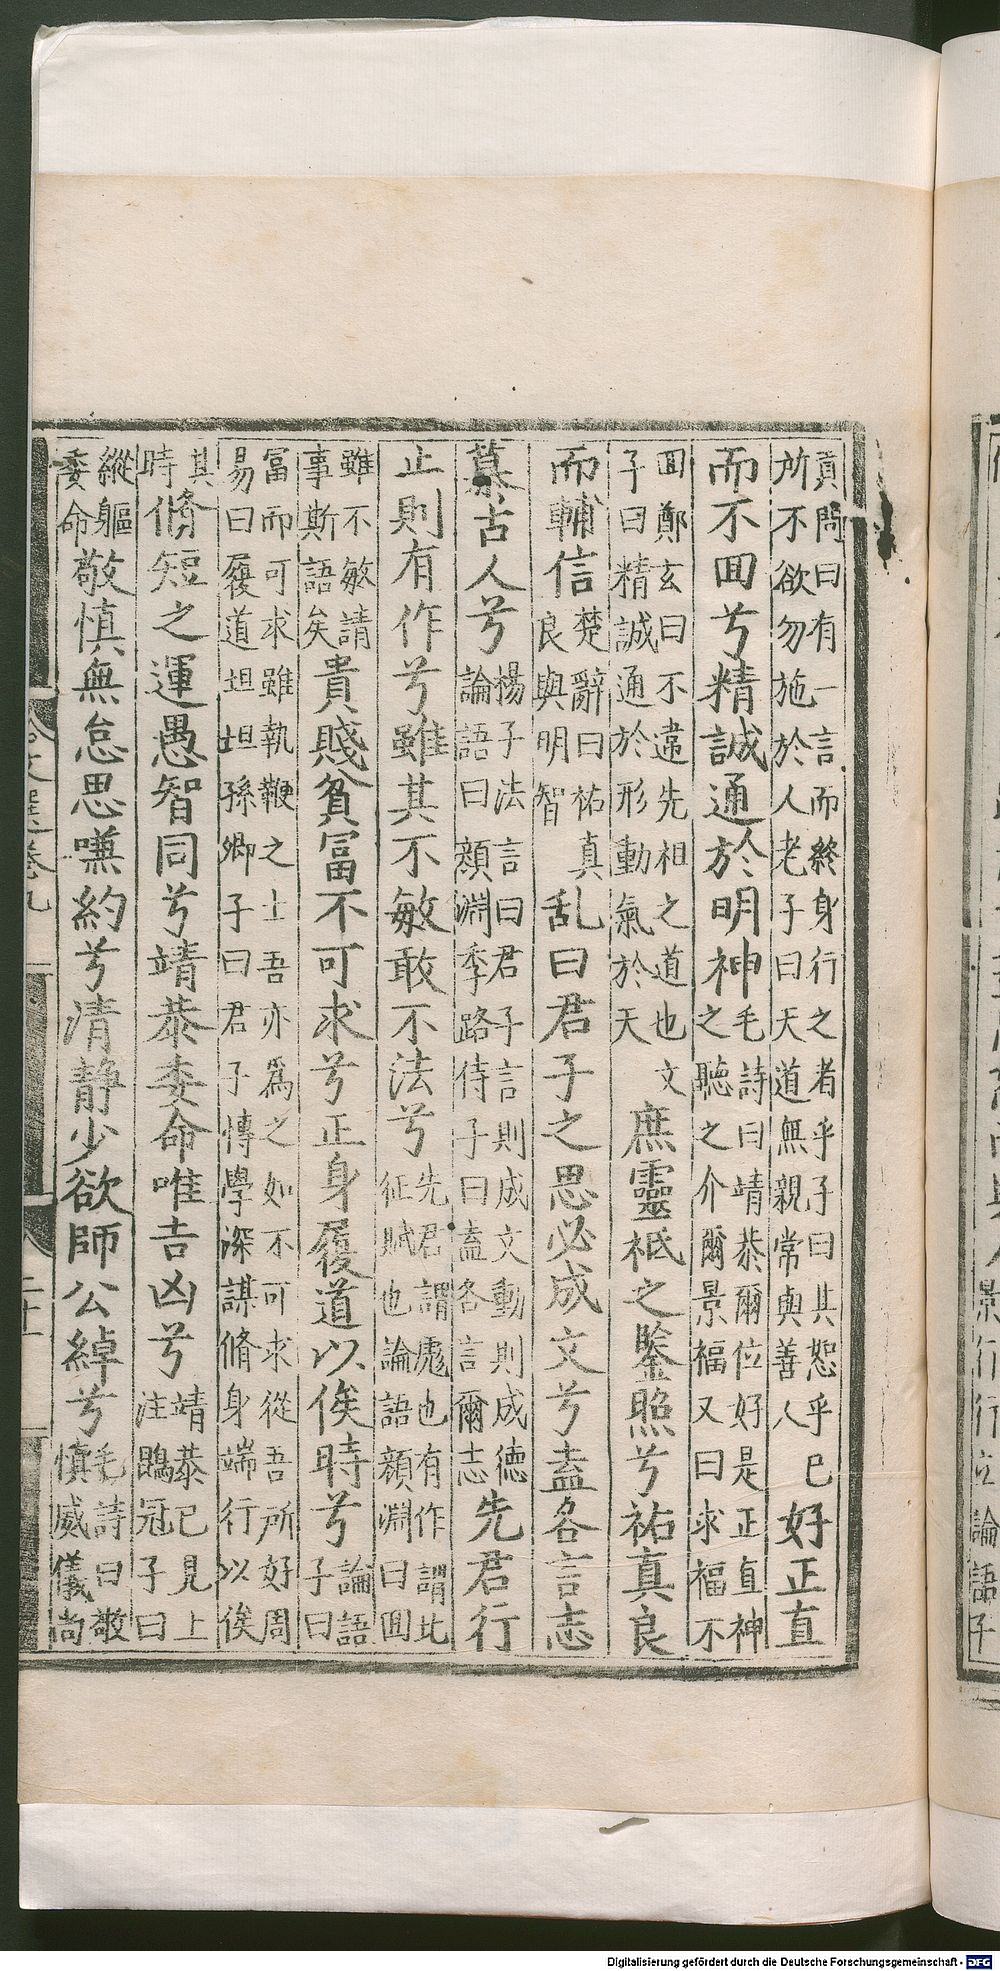 景行行止論語子
貢問曰有一言而終身行之者乎子曰其恕乎已
所不欲勿施於人老子曰天道無親常與善人
好正直
而不囬兮精誠通於明神
毛詩曰靖恭爾位好是正直神
之聽之介爾景福又曰求福不
囬鄭玄曰不違先祖之道也文
子曰精誠通於形動氣於天
庶靈祇之鑒照兮祐真良
而輔信
楚辭曰祐真
良與明智
乱曰君子之思必成文兮盍各言志
慕古人兮
楊子法言曰君子言則成文動則成德
論語曰顏淵季路侍子曰盍各言爾志
先君行
止則有作兮雖其不敏敢不法兮
先君謂彪也有作謂此
征賦也論語顏淵曰囬
雖不敏請
事斯語矣
貴賤貧富不可求兮正身履道以俟時兮
論語
子曰
富而可求雖執鞭之士吾亦爲之如不可求從吾所好周
易曰履道坦坦孫卿子曰君子博學深謀脩身端行以俟
其
時
脩短之運愚智同兮靖恭委命唯吉凶兮
靖恭已見上
注鶡冠子曰
縱軀
委命
敬慎無怠思嗛約兮清静少欲師公綽兮
毛詩曰敬
慎威儀尚
文選卷九
二十一
Digitalisierung gefördert durch die Deutsche Forschungsgemeinschaft - DFG